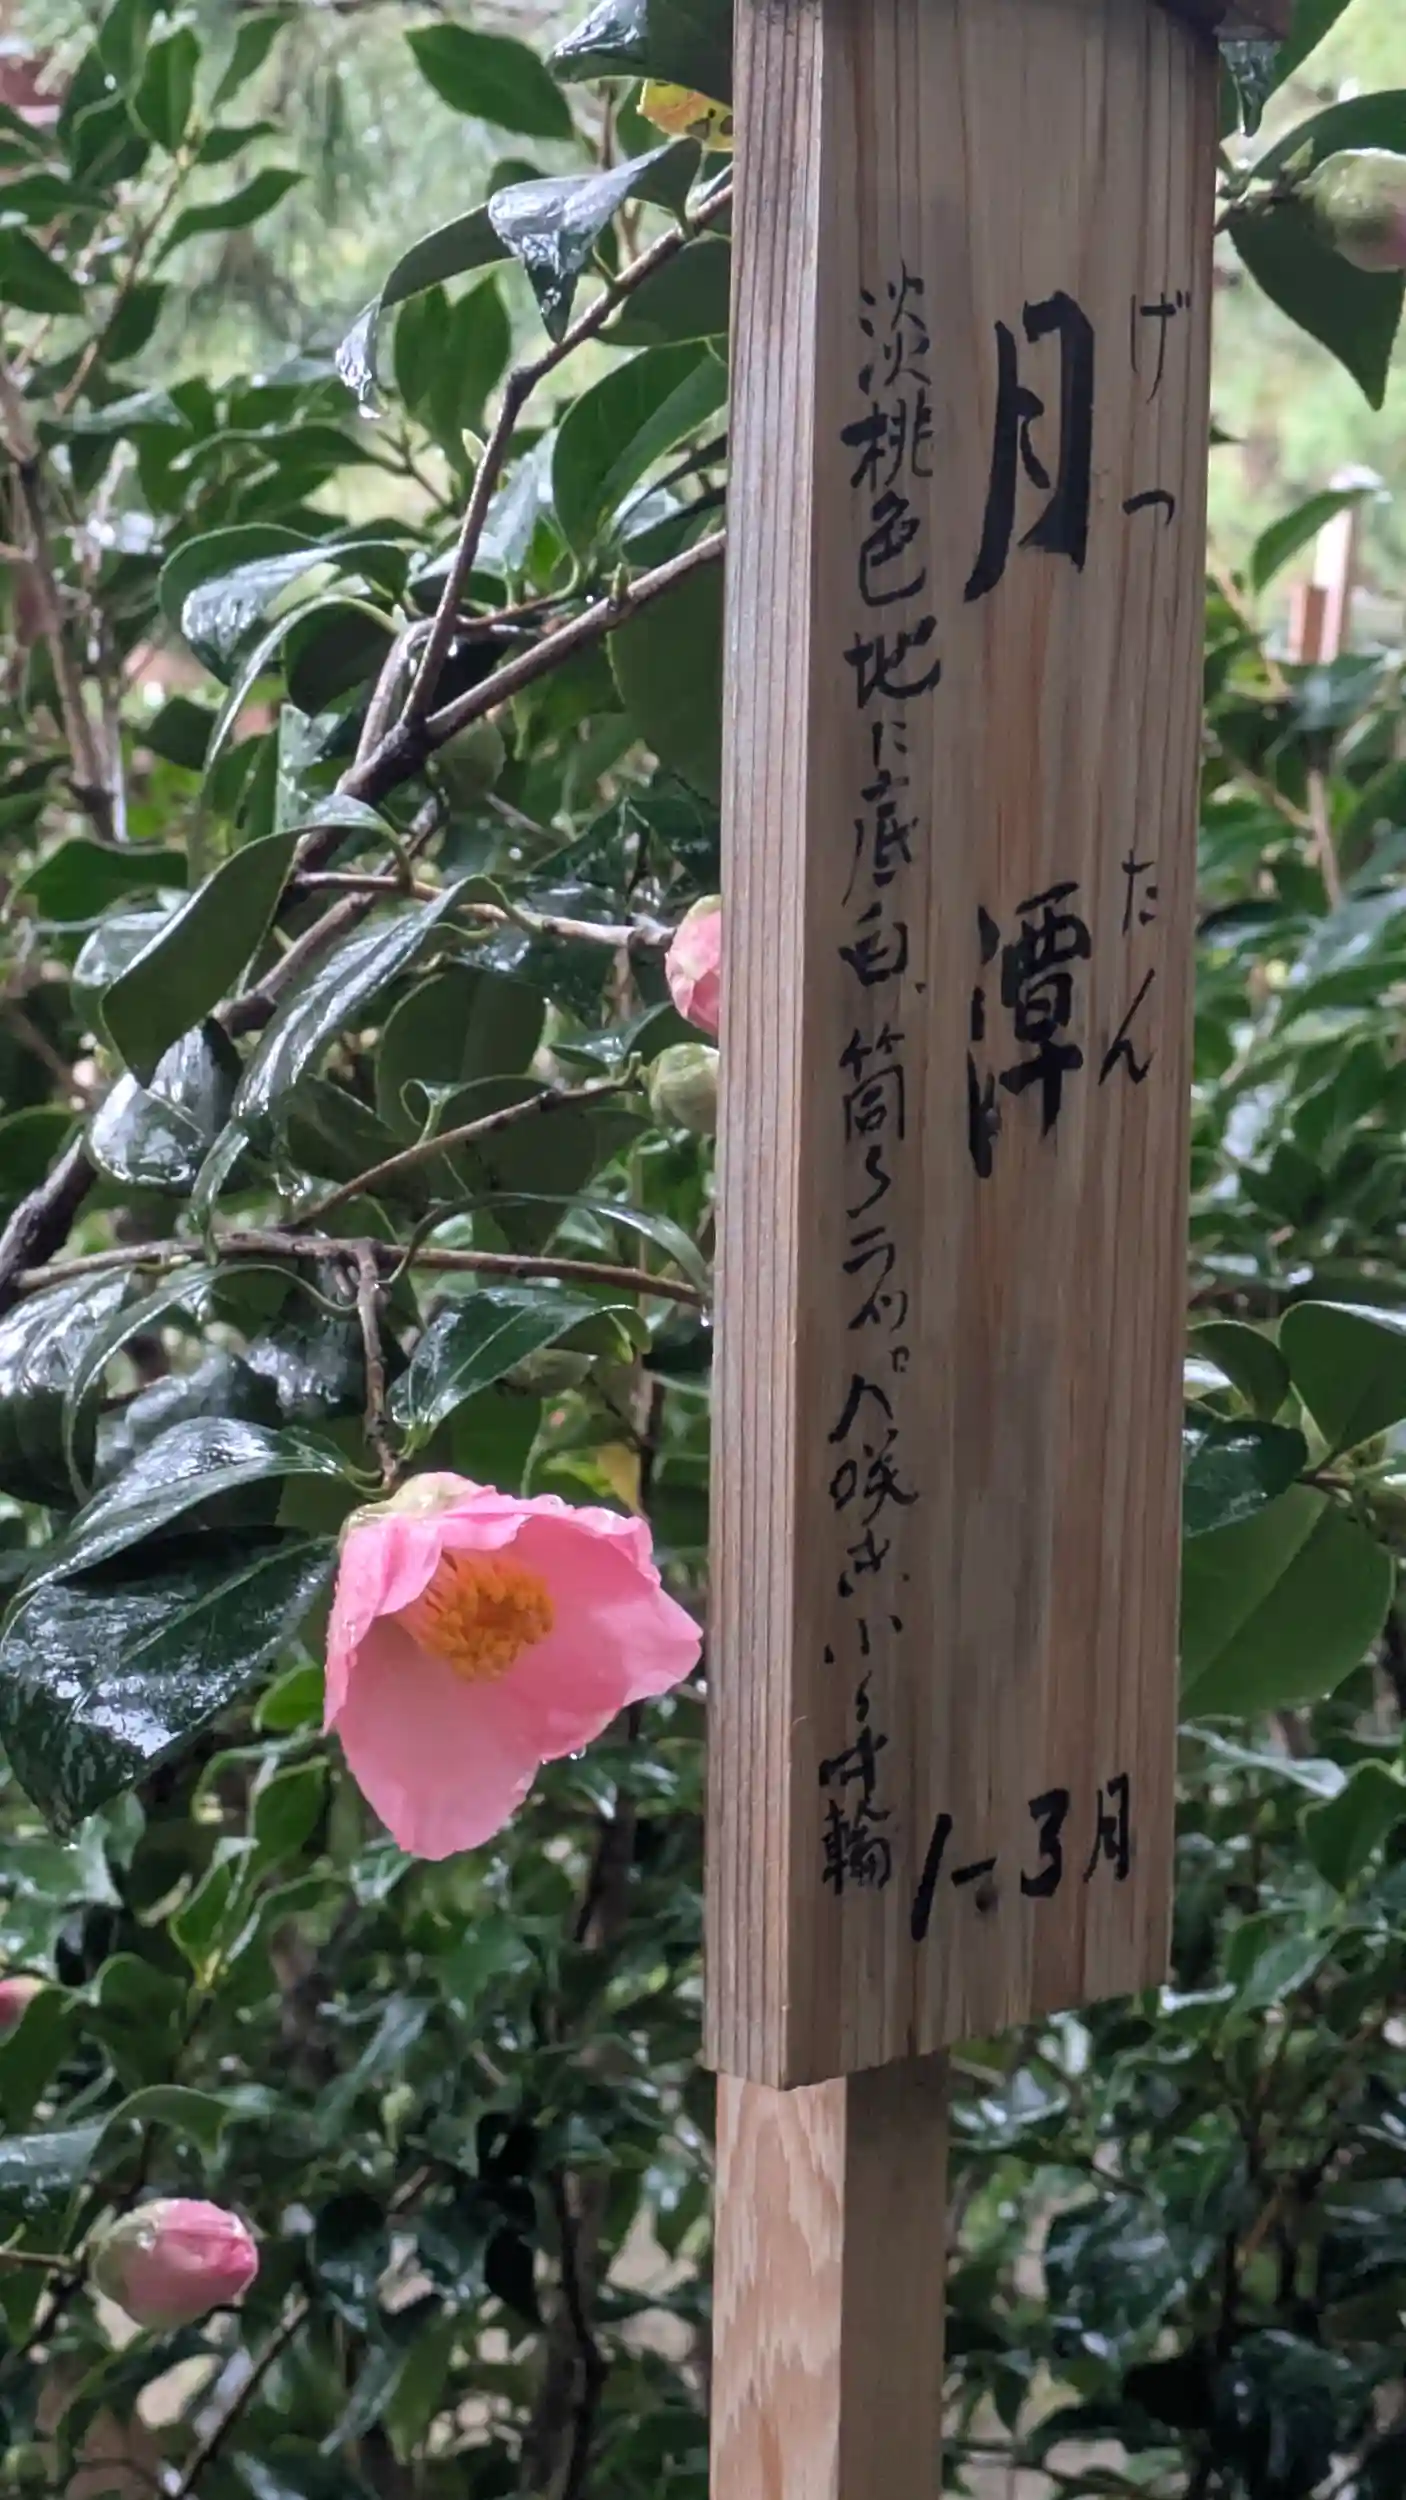 げつ たん
月 潭
淡桃色地に底白、筒〜ラッパ咲き、小〜中輪
1-3月